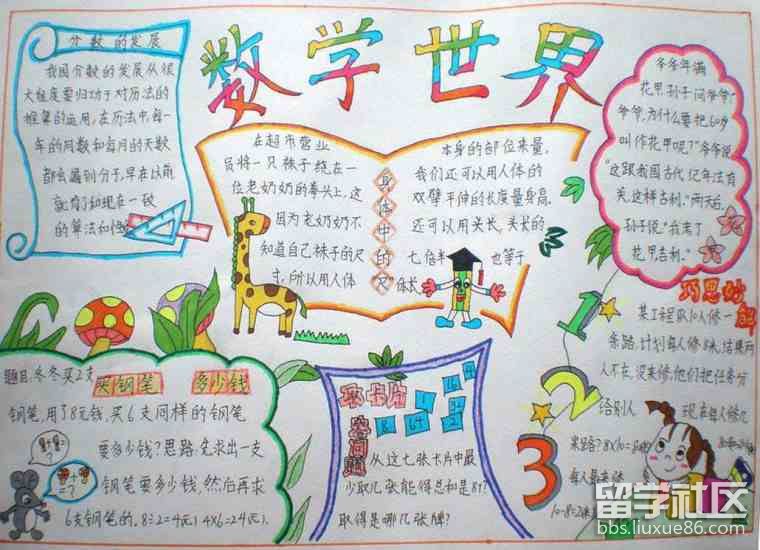 数学世界
分数的发展
我国分数的发展从很
大程度要归功于对历法的
框算的运用，在历法中每一
年的月数和每月的天数
都会遇到分子，早在以前
就有了和现在一致
的算法和
在超市营业
员将一只袜子绕在一
位老奶奶的拳头上，这
因为老奶奶不
知道自己袜子的尺
寸，所以用人体
身体中的尺
本身的部位来量。
我们还可以用人体的
双臂平伸的长度量身高。
还可以用头长，头长的
七倍半 也等于
身长
爷爷年满
花甲，孙子问爷爷：“
爷爷，为什么要把60岁
叫作花甲呢？”爷爷说
“这跟我国古代纪年法有
关，这样吉利。”两天后，
孙子说“我丢了
花甲吉利。”
巧思妙解
某工程队10人修一
条路，计划每人修8米，结果两
人不在，没来修，他们把任务分
给别人 现在每人修几
米路？8×10=80米
每人是
10-8=2
1
2
3
题目：冬冬买2支
买钢笔 多少钱
钢笔，用了8元钱，买6支同样的钢笔
要多少钱？思路：先求出一支
钢笔要多少钱，然后再求
6支钢笔的。8÷2=4(元) 4×6=24(元)
=?
取卡片
的问题
从这七张卡片中最
少取几张能得总和是87？
取得是哪几张牌？
留学社区
bbs.liuxue86.com